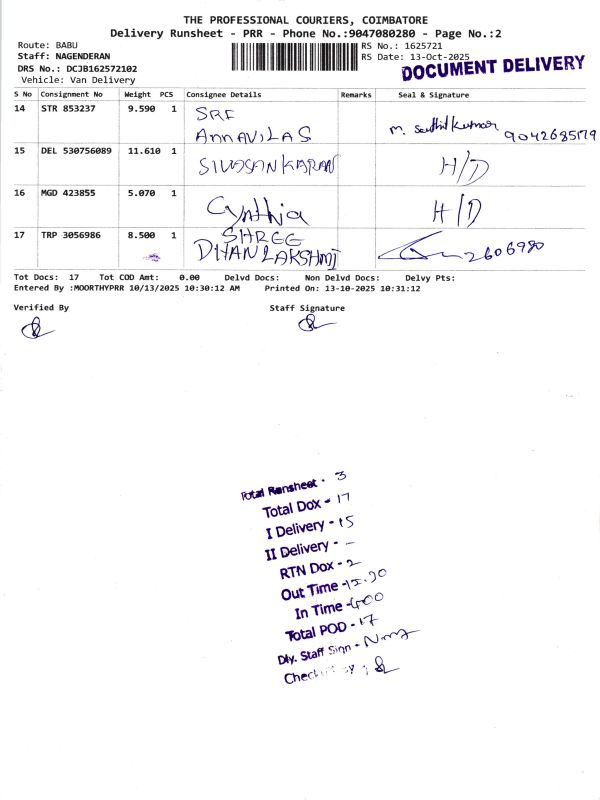 THE PROFESSIONAL COURIERS, COIMBATORE
Delivery Runsheet - PRR - Phone No.:9047080280 - Page No.:2
Route: BABU RS No.: 1625721
Staff: NAGENDERAN RS Date: 13-Oct-2025
DRS No.: DCJB162572102 DOCUMENT DELIVERY
Vehicle: Van Delivery
S No Consignment No Weight PCS Consignee Details Remarks Seal & Signature
14 STR 853237 9.590 1 SRF
ANNAVILAS M. Senthil Kumar 9042685179
15 DEL 530756089 11.610 1 SIVASANKARAN H/D
16 MGD 423855 5.070 1 Cynthia H/D
17 TRP 3056986 8.500 1 SHREE
DHANLAKSHMI 2606980
Tot Docs: 17 Tot COD Amt: 0.00 Delvd Docs: Non Delvd Docs: Delvy Pts:
Entered By :MOORTHYPRR 10/13/2025 10:30:12 AM Printed On: 13-10-2025 10:31:12
Verified By Staff Signature
Total Runsheet - 3
Total Dox - 17
I Delivery - 15
II Delivery - –
RTN Dox - 2
Out Time -
In Time - 400
Total POD - 17
Dly. Staff Sign -
Check By